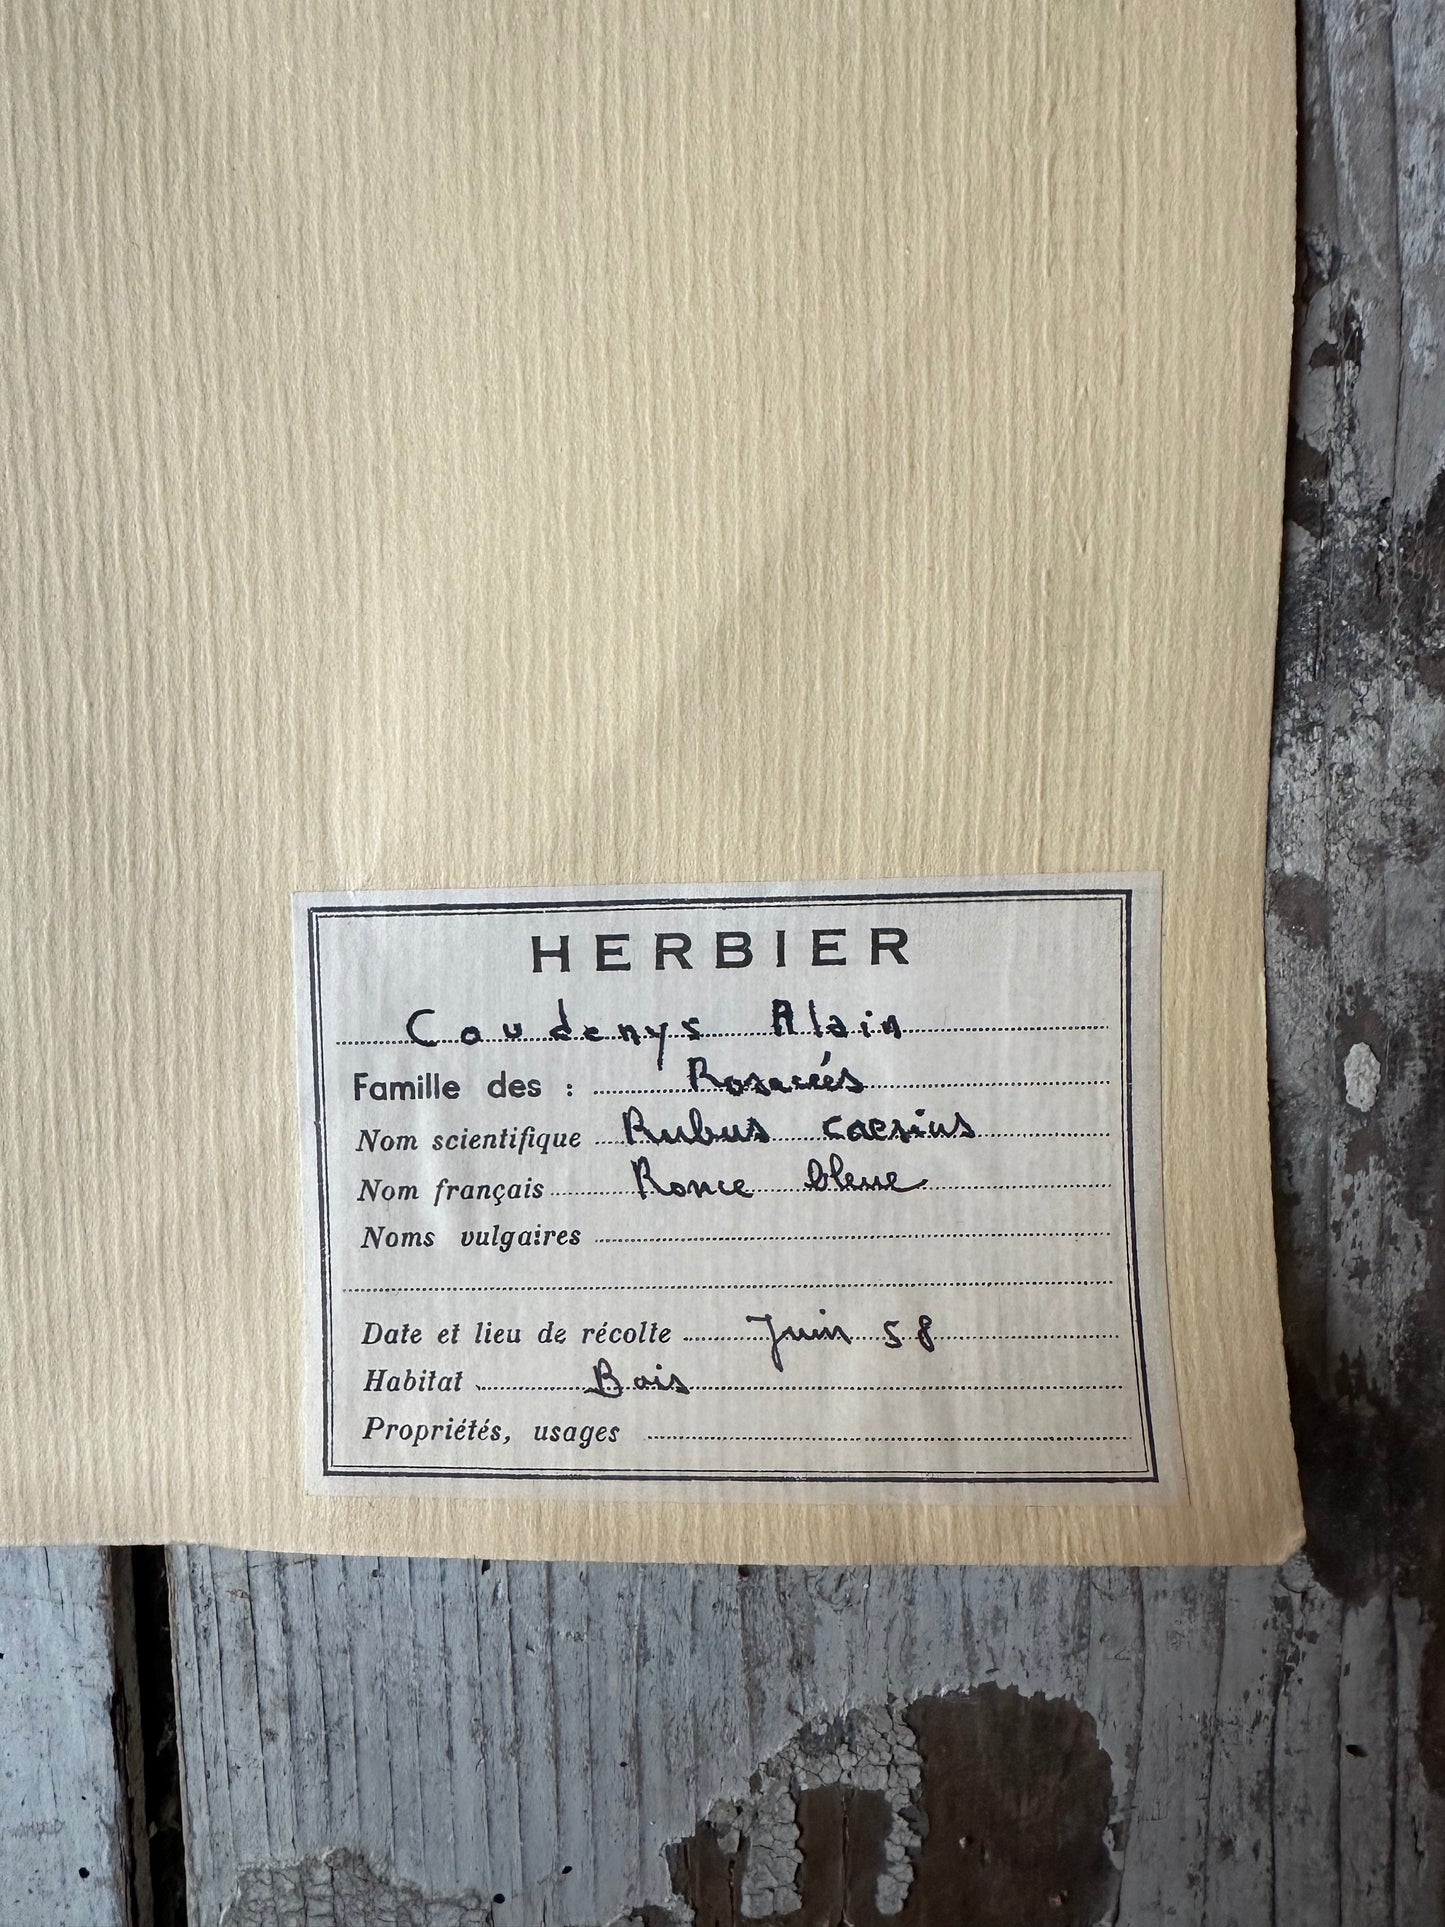 HERBIER
Coudenys Alain
Famille des : Rosacées
Nom scientifique Rubus caesius
Nom français Ronce bleue
Noms vulgaires
Date et lieu de récolte Juin 58
Habitat Bois
Propriétés, usages